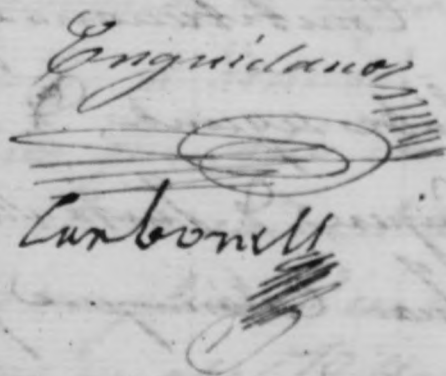 Enguidanos
Carbonell